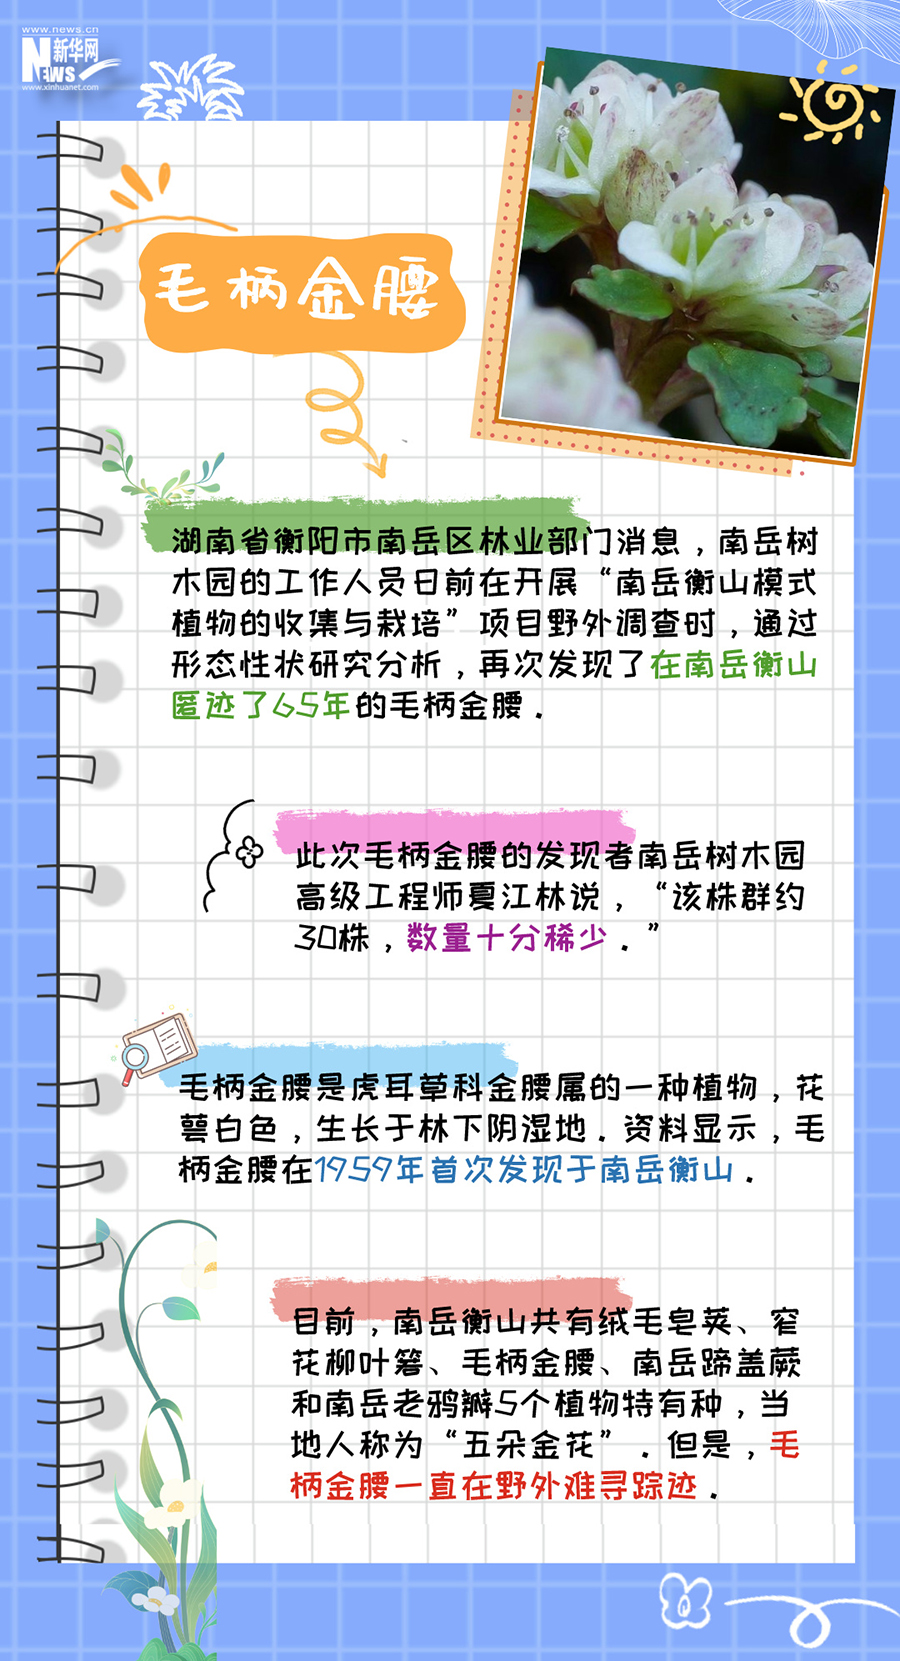 www.news.cn
新华网
NEWS
www.xinhuanet.com
毛柄金腰
湖南省衡阳市南岳区林业部门消息，南岳树
木园的工作人员日前在开展“南岳衡山模式
植物的收集与栽培”项目野外调查时，通过
形态性状研究分析，再次发现了在南岳衡山
匿迹了65年的毛柄金腰．
此次毛柄金腰的发现者南岳树木园
高级工程师夏江林说，“该株群约
30株，数量十分稀少．”
毛柄金腰是虎耳草科金腰属的一种植物，花
萼白色，生长于林下阴湿地．资料显示，毛
柄金腰在1959年首次发现于南岳衡山．
目前，南岳衡山共有绒毛皂荚、窄
花柳叶箬、毛柄金腰、南岳蹄盖蕨
和南岳老鸦瓣5个植物特有种，当
地人称为“五朵金花”．但是，毛
柄金腰一直在野外难寻踪迹．